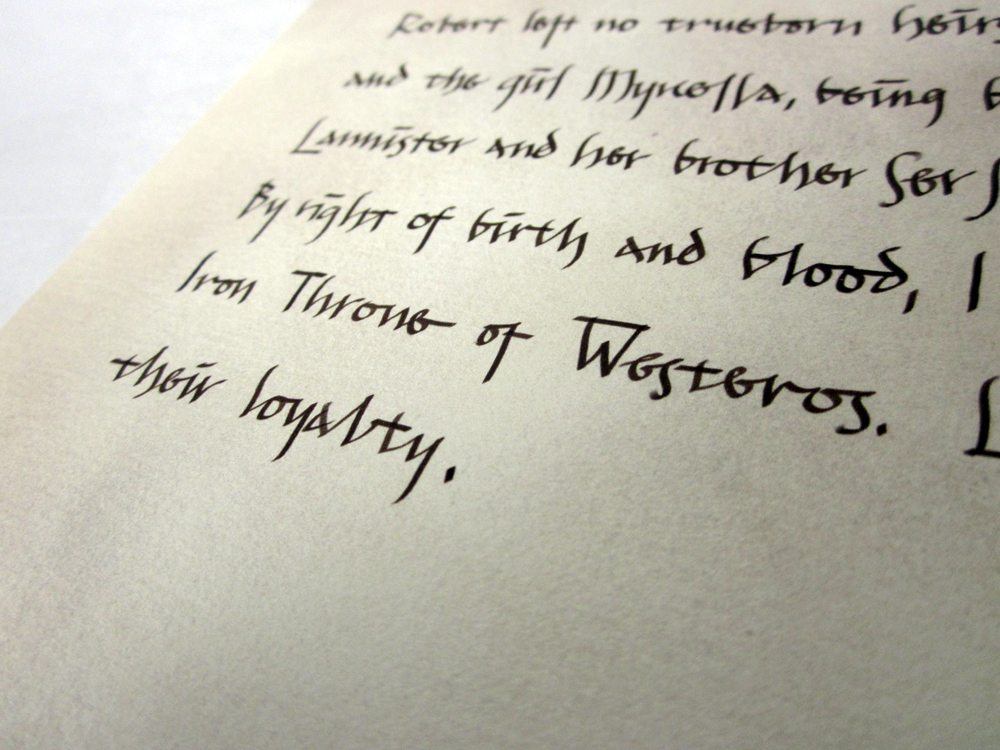 Robert left no trueborn heirs
and the girl Myrcella, being
Lannister and her brother Ser
By right of birth and blood, I
Iron Throne of Westeros.
their loyalty.